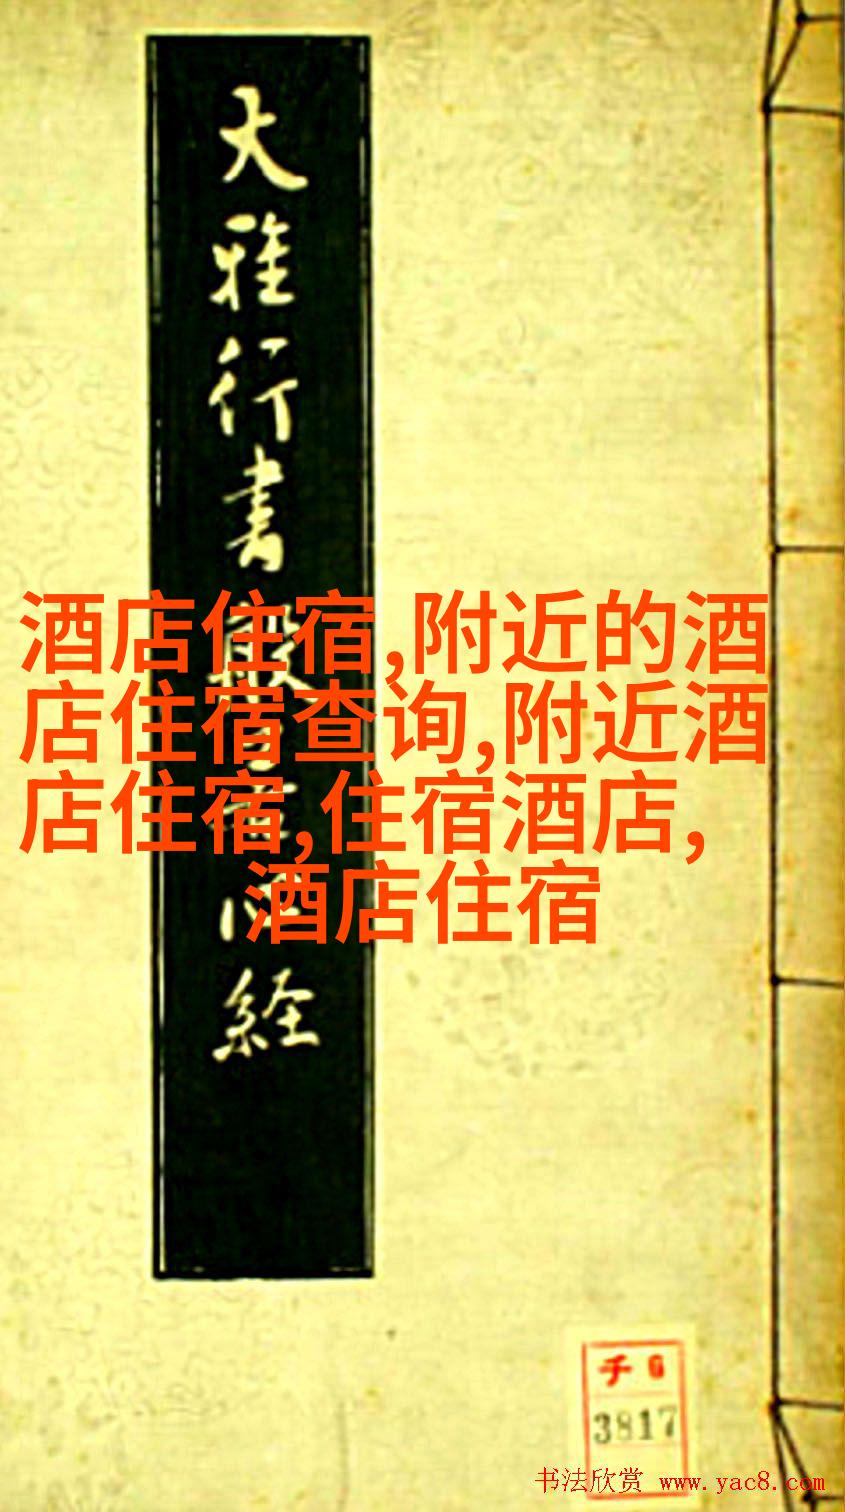 大雅行書
経
酒店住宿,附近的酒
店住宿查询,附近酒
店住宿,住宿酒店,
酒店住宿
チ 6
3817
书法欣赏 www.yac8.com